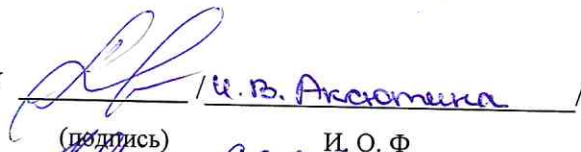 / И. В. Аксютина /
(подпись) И. О. Ф